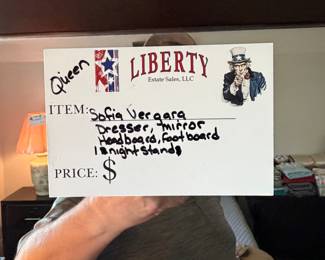 Queen
LIBERTY
Estate Sales, LLC
ITEM: Sofia Vergara
Dresser, mirror
Headboard, footboard
1 nightstand
PRICE: $